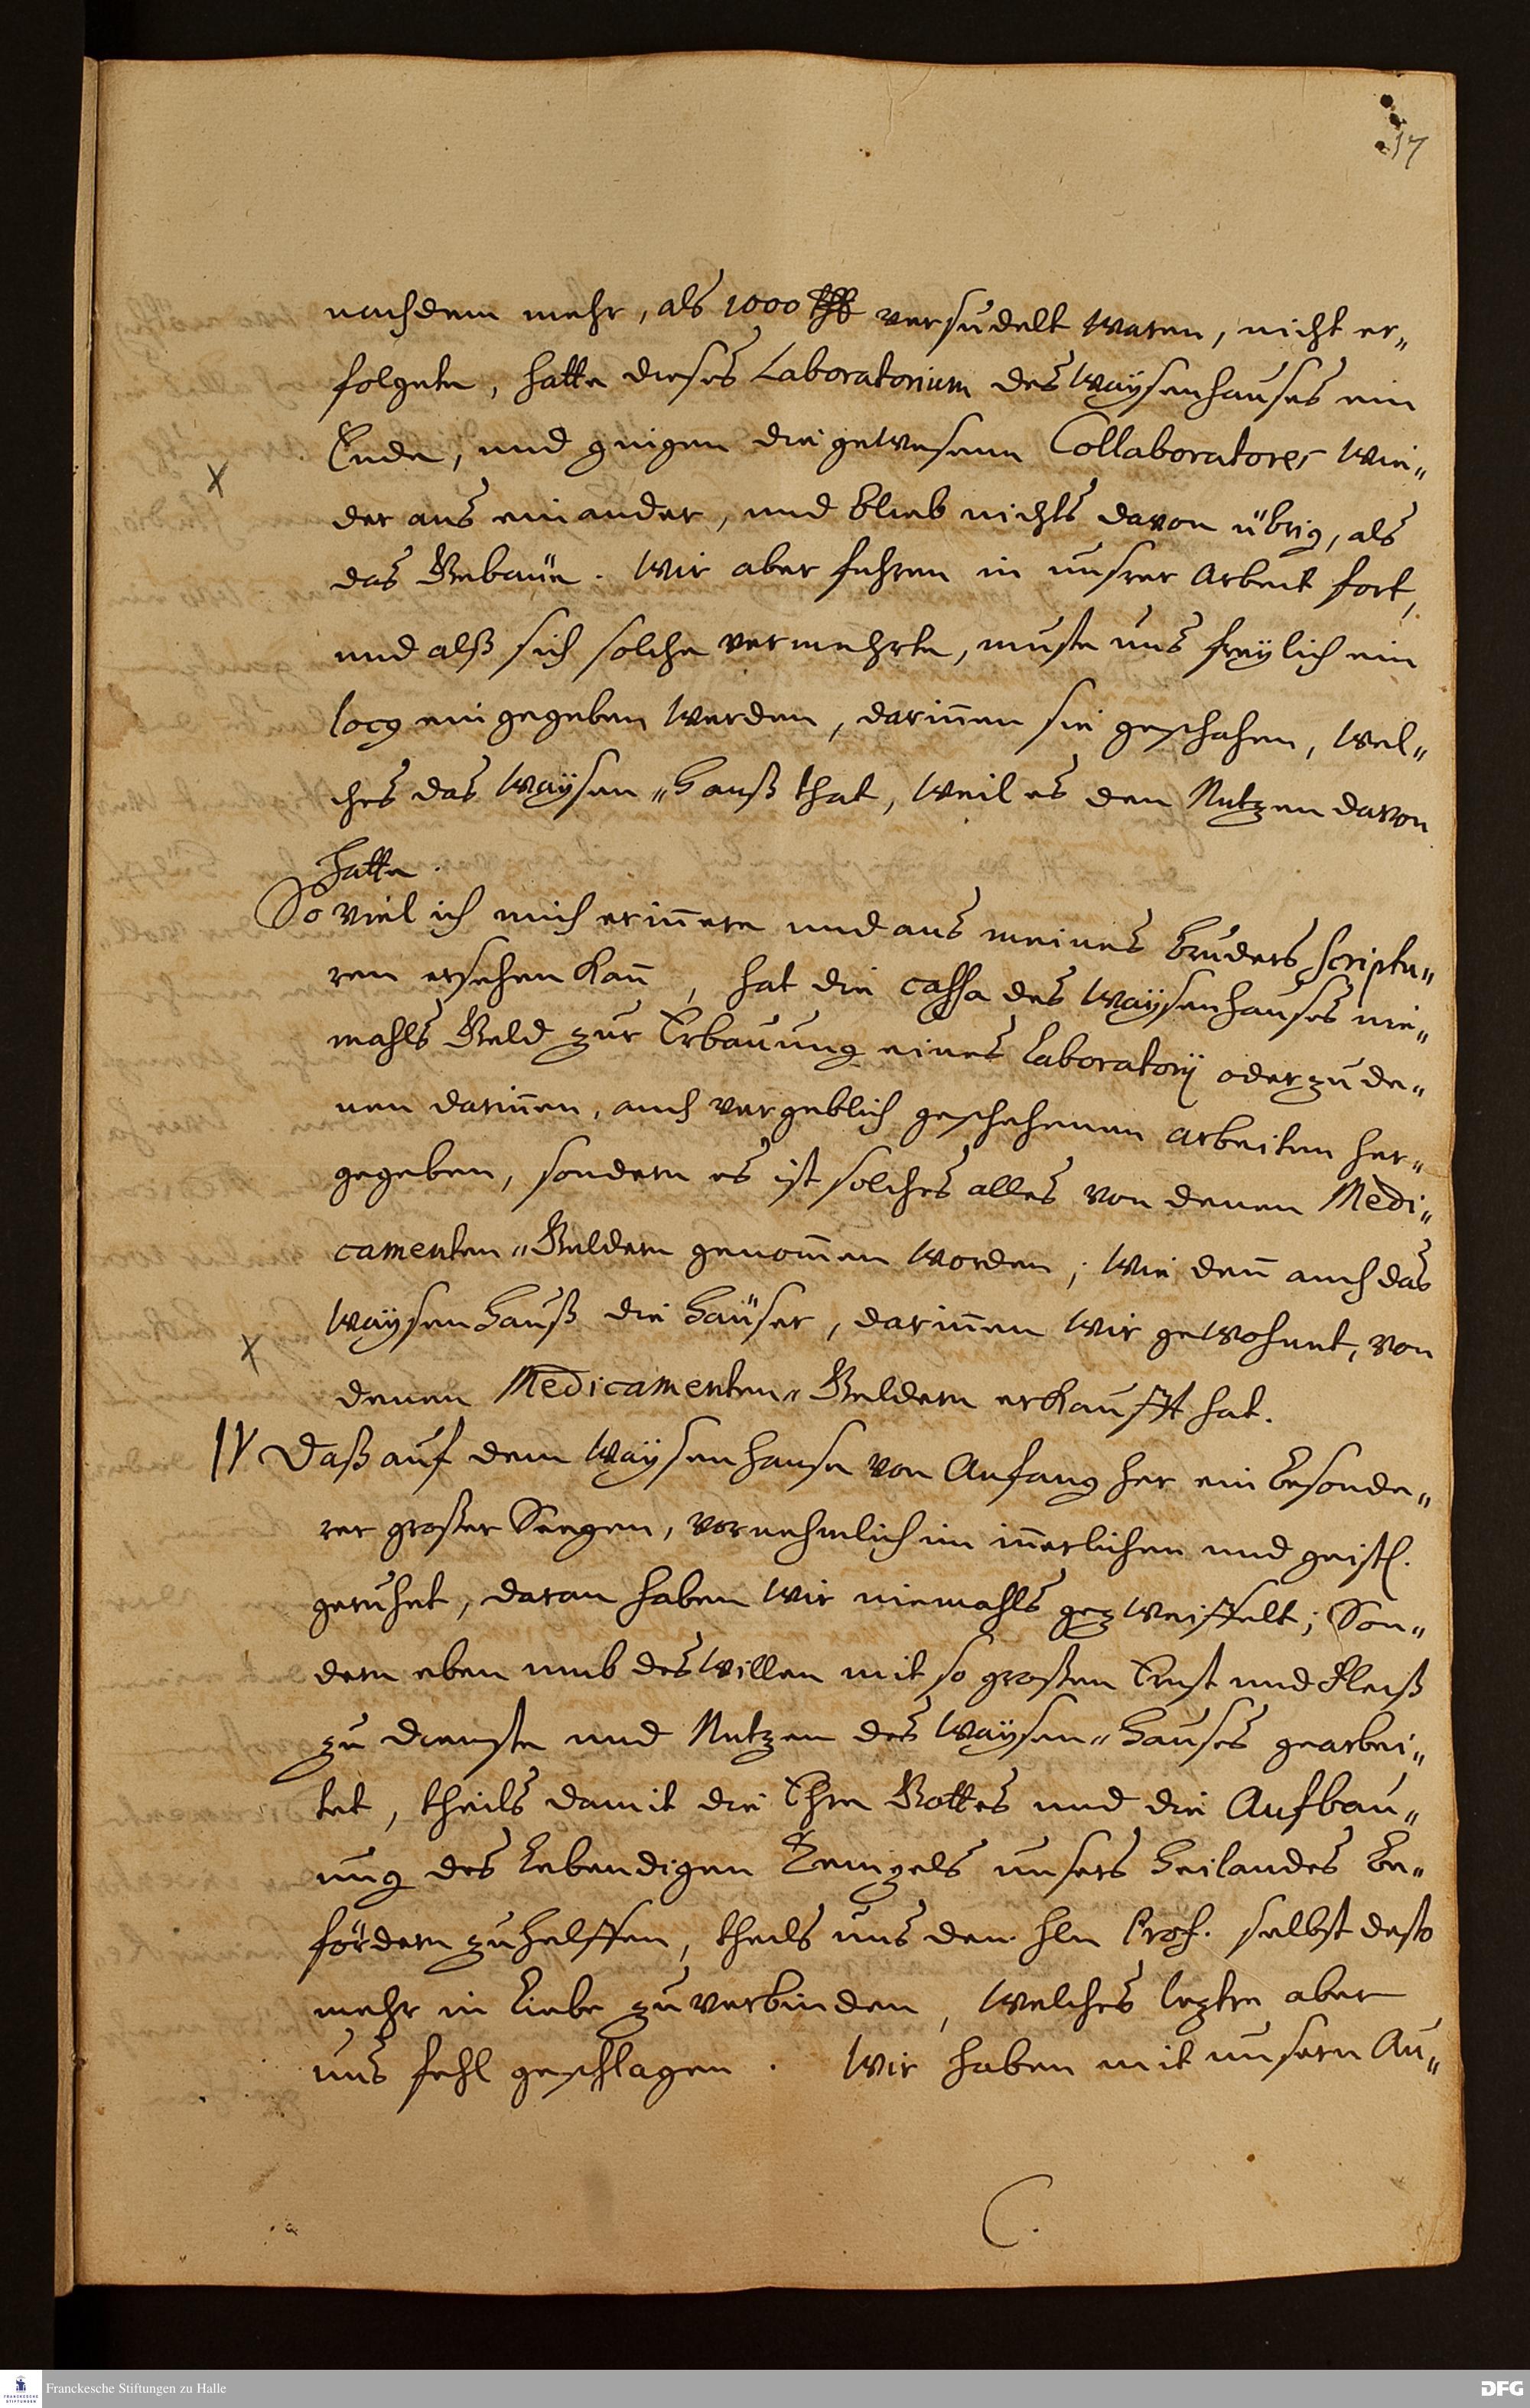 17
nachdem mehr, als 1000 versudelt waren, nicht er„
folgete, hatte dieses Laboratorium des Waÿsenhauses ein
Ende, und giengen die gewesene Collaboratores wie„
der aus einander, und blieb nichts davon übrig, als
das Gebäue. Wir aber fuhren in unsrer Arbeit fort,
und alß sich solche vermehrte, muste uns freÿlich ein
locg eingegeben werden, darinen sie geschahen, wel„
ches das Waÿsen„Hauß that, weil es den Nutzen davon
hatte.
So viel ich mich erinere und aus meines Bruders Scriptu„
ren ersehen kan, hat die cassa des Waÿsenhauses nie„
mahls Geld zur Erbauung eines Laboratorij oder zu de„
nen darinen, auch vergeblich geschehenen arbeiten her„
gegeben, sondern es ist solches alles von denen Medi„
camenten„Geldern genomen worden; wie den auch das
Waÿsen Hauß die Häuser, darinen wir gewohnet, von
denen Medicamenten„Geldern erkaufft hat.
IV Daß auf dem Waÿsenhause von Anfang her ein besonde„
rer großer Seegen, vornehmlich im inerlichen und geistl.
geruhet, daran haben wir niemahls gezweiffelt; Son„
dern eben umb deswillen mit so großen Ernst und Fleiß
zu dienste und Nutzen des Waÿsen„Hauses gearbei„
tet, theils damit die Ehre Gottes und die Aufbau„
ung des Lebendigen Tempels unsers Heilandes be„
fördern zu helffen, theils uns den Hln Prof. selbst desto
mehr in Liebe zu verbinden, welches leztre aber
uns fehl geschlagen. Wir haben mit unsern Au„
C.
Franckesche Stiftungen zu Halle
DFG